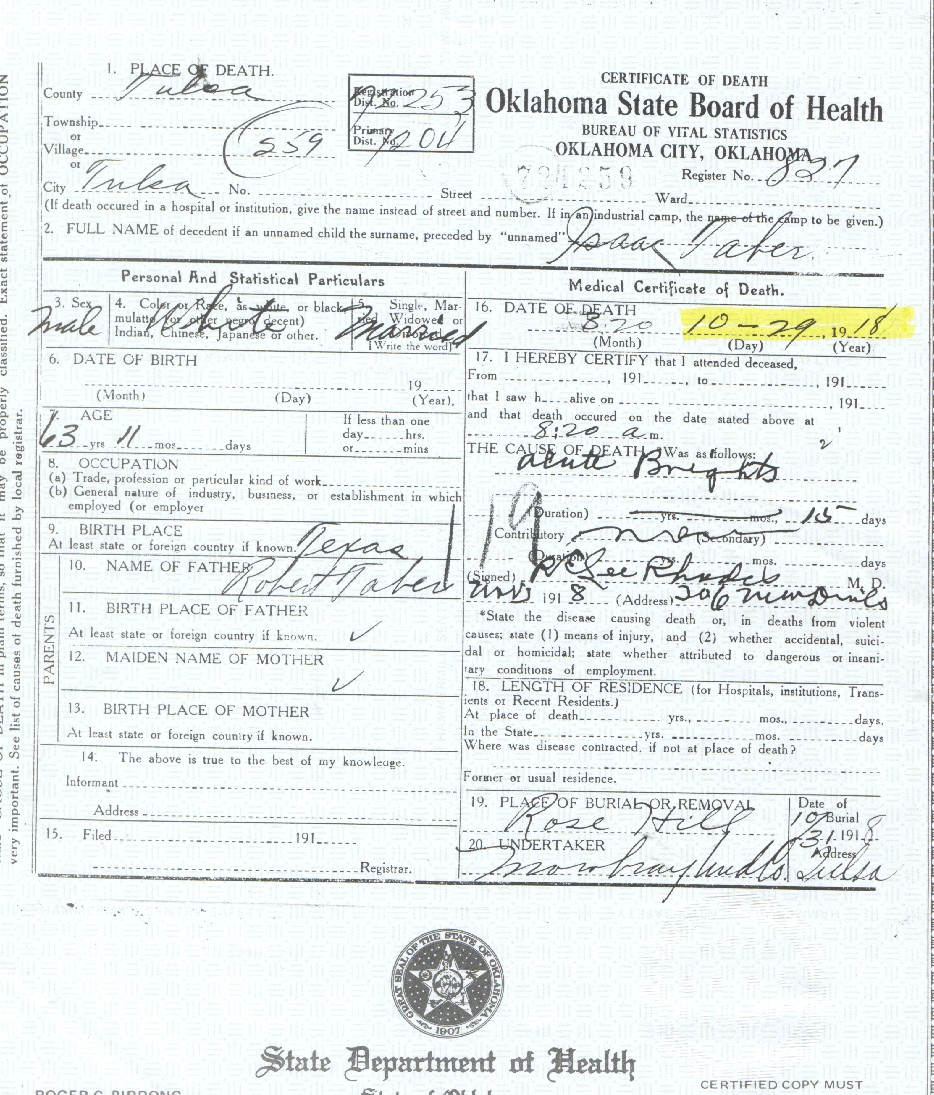 1. PLACE OF DEATH.
County Tulsa
Township
or
Village
or
City Tulsa No. Street Ward
559
Registration Dist. No. 72253
Primary Dist. No. 7204
CERTIFICATE OF DEATH
Oklahoma State Board of Health
BUREAU OF VITAL STATISTICS
OKLAHOMA CITY, OKLAHOMA
Register No. 827
(If death occured in a hospital or institution, give the name instead of street and number. If in an industrial camp, the name of the camp to be given.)
2. FULL NAME of decedent if an unnamed child the surname, preceded by "unnamed" Isaac Taber
Personal And Statistical Particulars
3. Sex
male
4. Color or Race, as white, or black
mulatto (or other negro decent)
Indian, Chinese, Japanese or other.
White
5. Single, Mar-
ried, Widowed or
Divorced
(Write the word)
Married
6. DATE OF BIRTH
19
(Month) (Day) (Year),
7. AGE
63 yrs 11 mos. days
If less than one
day hrs.
or mins
8. OCCUPATION
(a) Trade, profession or particular kind of work
(b) General nature of industry, business, or establishment in which
employed (or employer
9. BIRTH PLACE
At least state or foreign country if known. Texas
PARENTS
10. NAME OF FATHER
Robert Taber
11. BIRTH PLACE OF FATHER
At least state or foreign country if known. ✓
12. MAIDEN NAME OF MOTHER
✓
13. BIRTH PLACE OF MOTHER
At least state or foreign country if known.
14. The above is true to the best of my knowleage.
Informant
Address
15. Filed 191
Registrar.
Medical Certificate of Death.
16. DATE OF DEATH
8:20 10-29, 1918
(Month) (Day) (Year)
17. I HEREBY CERTIFY that I attended deceased,
From , 191 , to , 191
that I saw h alive on , 191
and that death occured on the date stated above at
8:20 a.m.
THE CAUSE OF DEATH Was as follows:
acute Brights
119
(Duration) yrs. mos., 15 days
Contributory (Secondary)
(Duration) mos. days
(Signed) Lee Rhodes M. D.
1918 (Address) 206 New Daniels
*State the disease causing death or, in deaths from violent
causes; state (1) means of injury, and (2) whether accidental, suici-
dal or homicidal; state whether attributed to dangerous or insani-
tary conditions of employment.
18. LENGTH OF RESIDENCE (for Hospitals, institutions, Trans-
ients or Recent Residents.)
At place of death yrs., mos. days.
In the State yrs. mos. days
Where was disease contracted, if not at place of death?
Former or usual residence.
19. PLACE OF BURIAL OR REMOVAL
Rose Hill
Date of
Burial
10/31 1918
20. UNDERTAKER
Mowbray Und Co.
Address
Tulsa
very important. See list of causes of death furnished by local registrar.
GREAT SEAL OF THE STATE OF OKLAHOMA
1907
State Department of Health
CERTIFIED COPY MUST